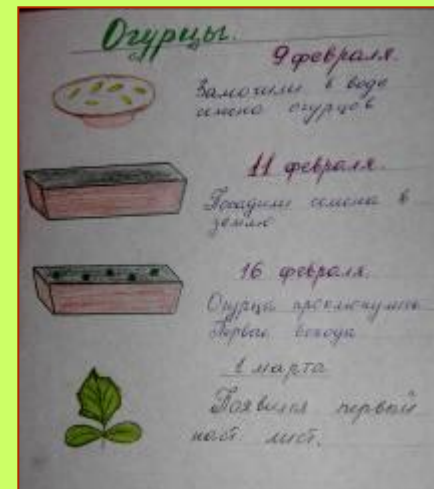 Огурцы.
9 февраля.
Замочили в воде
семена огурцов
11 февраля.
Посадили семена в
землю
16 февраля.
Огурцы проклюнулись
Первые всходы
1 марта
Появился первый
наст. лист.